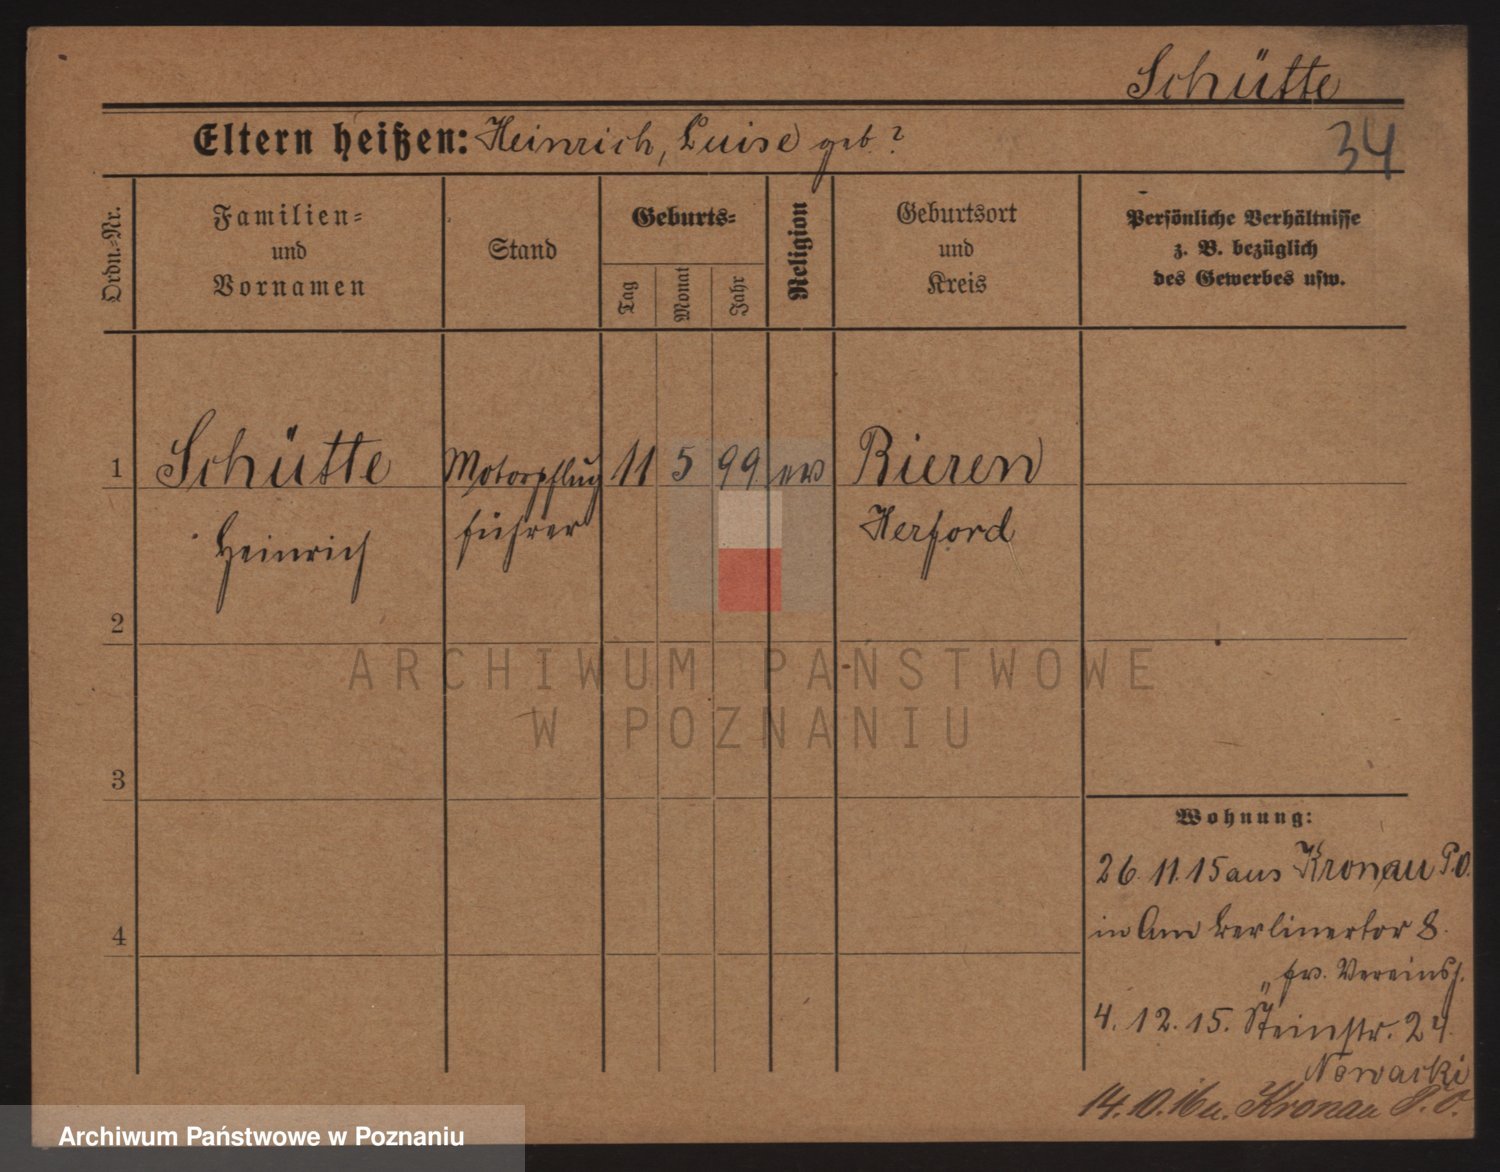 Schütte
Eltern heißen: Heinrich, Luise geb. ?
34
Ordn.-Nr.
Familien-
und
Vornamen
Stand
Geburts-
Tag
Monat
Jahr
Religion
Geburtsort
und
Kreis
Persönliche Verhältnisse
z. B. bezüglich
des Gewerbes usw.
1 Schütte Motorpflug 11 5 99 ev Bieren
Heinrich führer Herford
2
ARCHIWUM PAŃSTWOWE
W POZNANIU
3
Wohnung:
26. 11. 15 aus Kronau P.O.
in Am Berlinertor 8.
4
" fr. Vereinsh.
4. 12. 15. Steinstr. 24.
Nowacki
14. 10. 16 n. Kronau P.O.
Archiwum Państwowe w Poznaniu